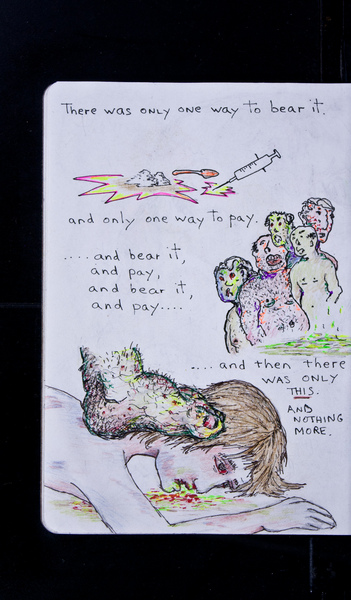 There was only one way to bear it.
and only one way to pay.
....and bear it,
and pay,
and bear it,
and pay....
....and then there
was only
THIS.
AND
NOTHING
MORE.